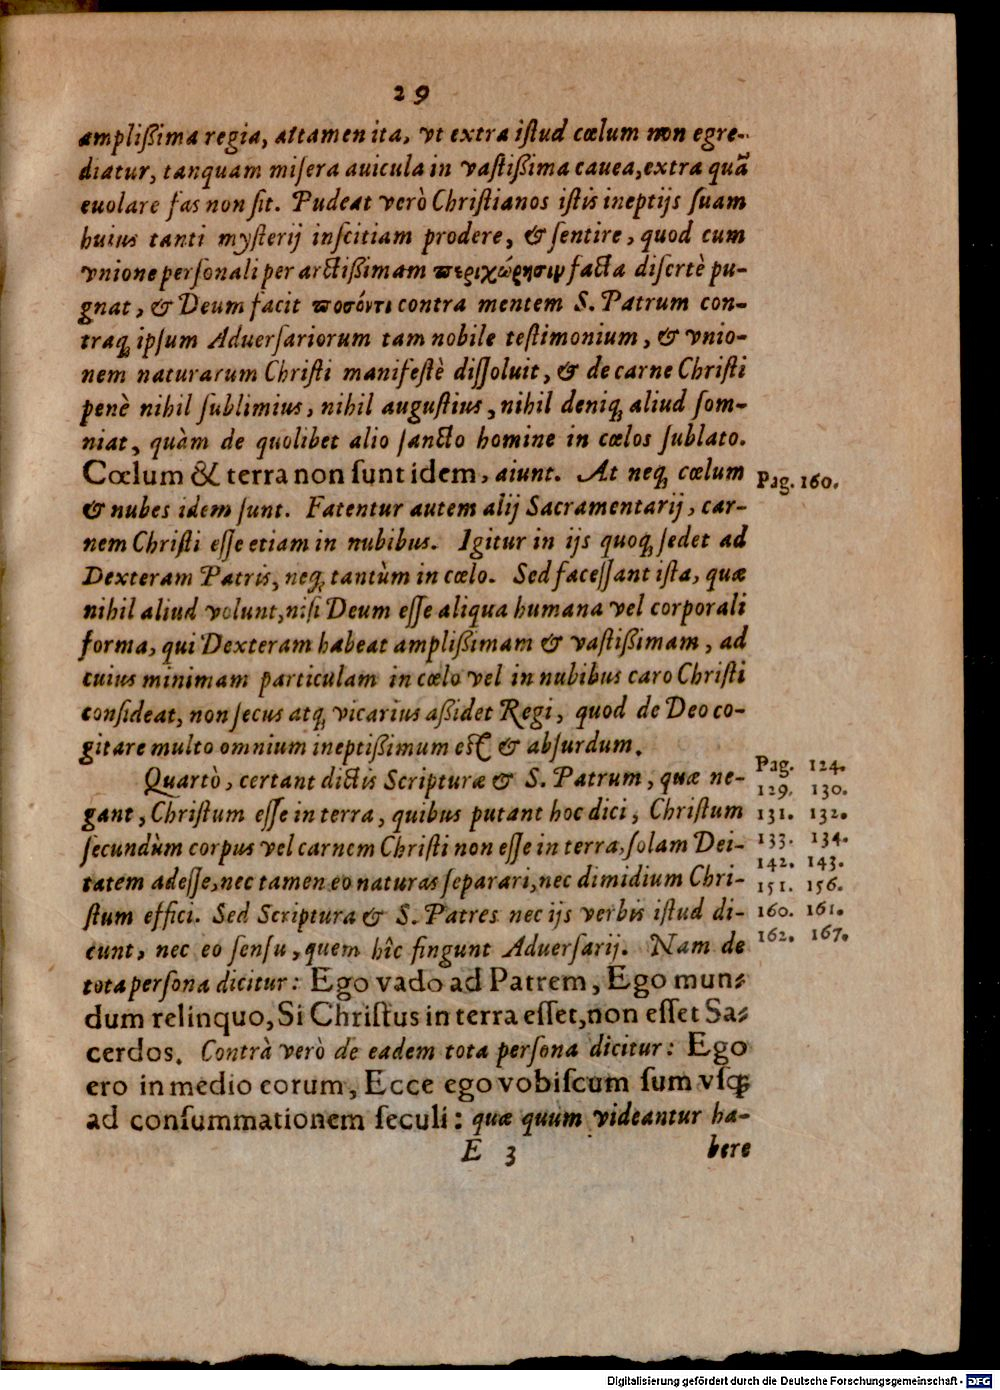 29
amplißima regia, attamen ita, vt extra iſtud cœlum non egre-
diatur, tanquam miſera auicula in vaſtißima cauea, extra quã
euolare fas non ſit. Pudeat verò Chriſtianos iſtis ineptijs ſuam
huius tanti myſterij inſcitiam prodere, & ſentire, quod cum
vnione perſonali per arctißimam περιχώρησιν facta diſertè pu-
gnat, & Deum facit ποσόντι contra mentem S. Patrum con-
traq́; ipſum Aduerſariorum tam nobile teſtimonium, & vnio-
nem naturarum Chriſti manifeſtè diſſoluit, & de carne Chriſti
penè nihil ſublimius, nihil auguſtius, nihil deniq́; aliud ſom-
niat, quàm de quolibet alio ſancto homine in cœlos ſublato.
Cœlum & terra non ſunt idem, aiunt. At neq́; cœlum
Pag. 160.
& nubes idem ſunt. Fatentur autem alij Sacramentarij, car-
nem Chriſti eſſe etiam in nubibus. Igitur in ijs quoq́; ſedet ad
Dexteram Patris, neq́; tantùm in cœlo. Sed faceſſant iſta, quæ
nihil aliud volunt, niſi Deum eſſe aliqua humana vel corporali
forma, qui Dexteram habeat amplißimam & vaſtißimam, ad
cuius minimam particulam in cœlo vel in nubibus caro Chriſti
conſideat, non ſecus atq́; vicarius aßidet Regi, quod de Deo co-
gitare multo omnium ineptißimum eſt & abſurdum.
Quartò, certant dictis Scripturæ & S. Patrum, quæ ne-
gant, Chriſtum eſſe in terra, quibus putant hoc dici, Chriſtum
ſecundùm corpus vel carnem Chriſti non eſſe in terra, ſolam Dei-
tatem adeſſe, nec tamen eo naturas ſeparari, nec dimidium Chri-
ſtum effici. Sed Scriptura & S. Patres nec ijs verbis iſtud di-
cunt, nec eo ſenſu, quem hîc fingunt Aduerſarij. Nam de
Pag. 124.
129. 130.
131. 132.
133. 134.
142. 143.
151. 156.
160. 161.
162. 167.
tota perſona dicitur: Ego vado ad Patrem, Ego mun-
dum relinquo, Si Chriſtus in terra eſſet, non eſſet Sa-
cerdos. Contrà verò de eadem tota perſona dicitur: Ego
ero in medio eorum, Ecce ego vobiſcum ſum vſq;
ad conſummationem ſeculi: quæ quum videantur ha-
E 3 bere
Digitalisierung gefördert durch die Deutsche Forschungsgemeinschaft - DFG